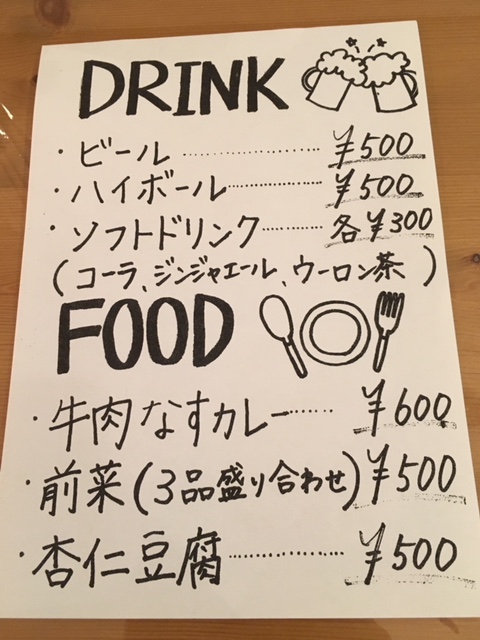 DRINK
・ビール ………… ¥500
・ハイボール ………… ¥500
・ソフトドリンク ……… 各¥300
(コーラ、ジンジャエール、ウーロン茶)
FOOD
・牛肉なすカレー…… ¥600
・前菜(3品盛り合わせ) ¥500
・杏仁豆腐 ………… ¥500